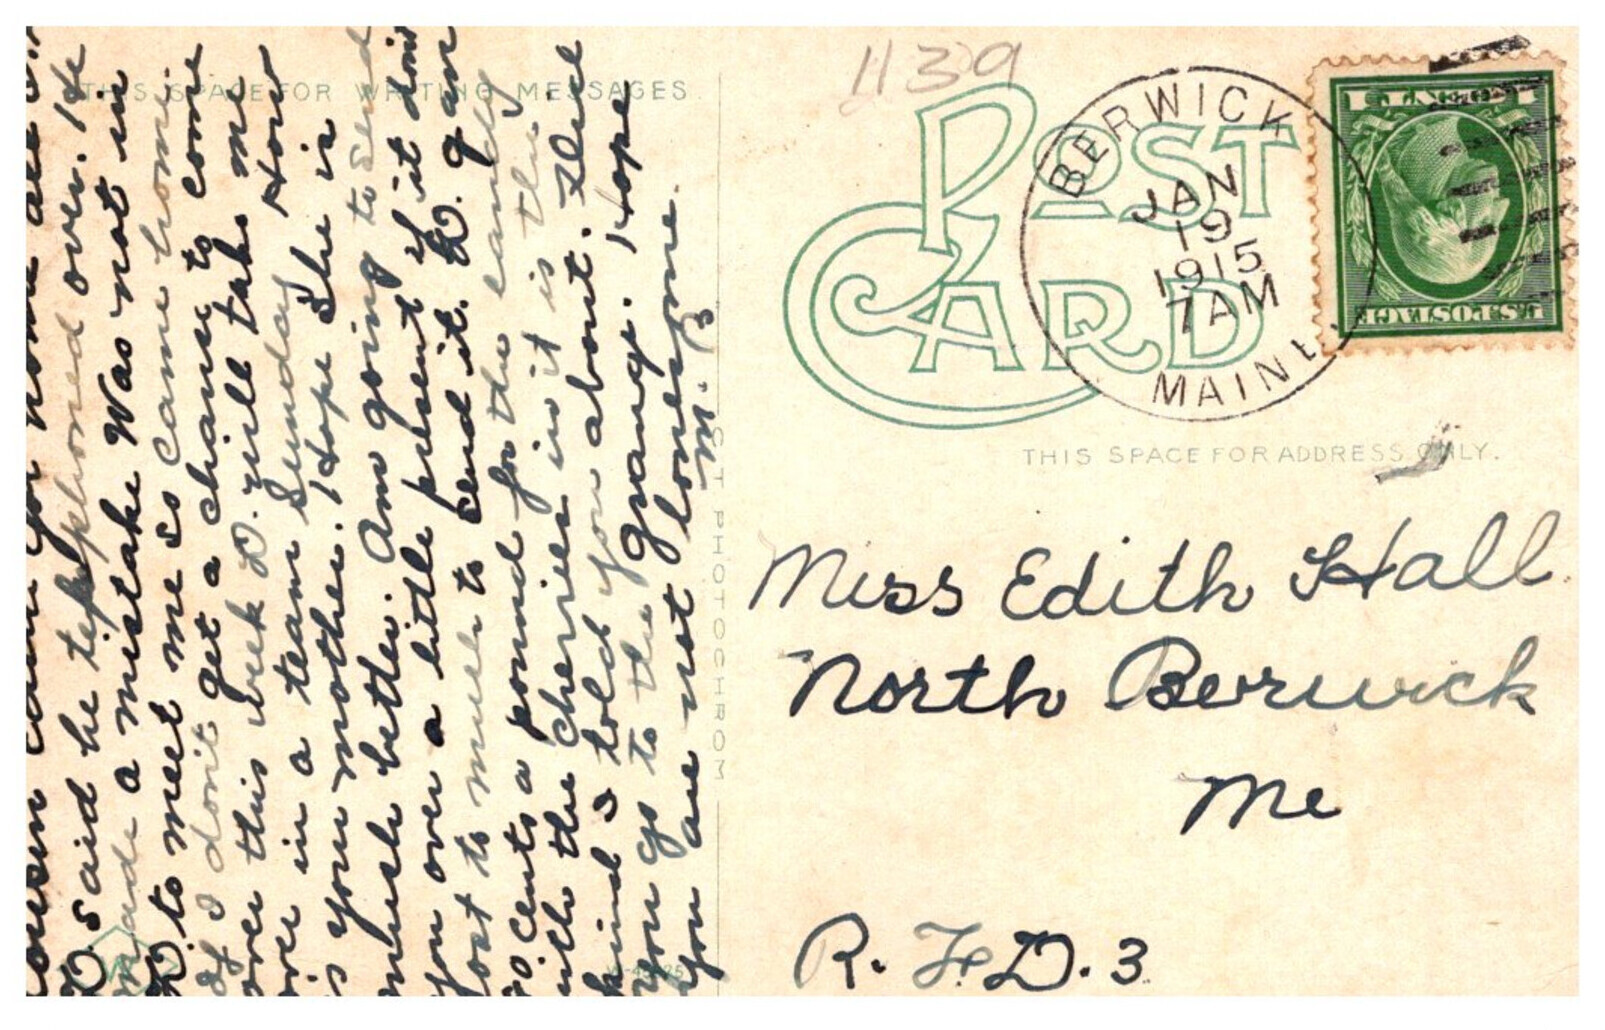 THIS SPACE FOR WRITING MESSAGES
Cousin
D. said he telephoned over. He
made a mistake Was not in
D. to meet me so came home.
If I don't get a chance to come
over this week D. will take me
over in a team Sunday How
is your mother. Hope she is
much better. Am going to send
you over a little present if it dont
cost to much to send it. D. gave
50 cents a pound for the candy
with the cherries in it is the
kind I told you about.
you go to the grange. Hope
you are not lonesome.
M. B.
PHOTOCHROM
1139
POST CARD
BERWICK
JAN
19
1915
7 AM
MAINE
1 CENT 1
U.S. POSTAGE
THIS SPACE FOR ADDRESS ONLY.
Miss Edith Hall
North Berwick
Me
R. F. D. 3